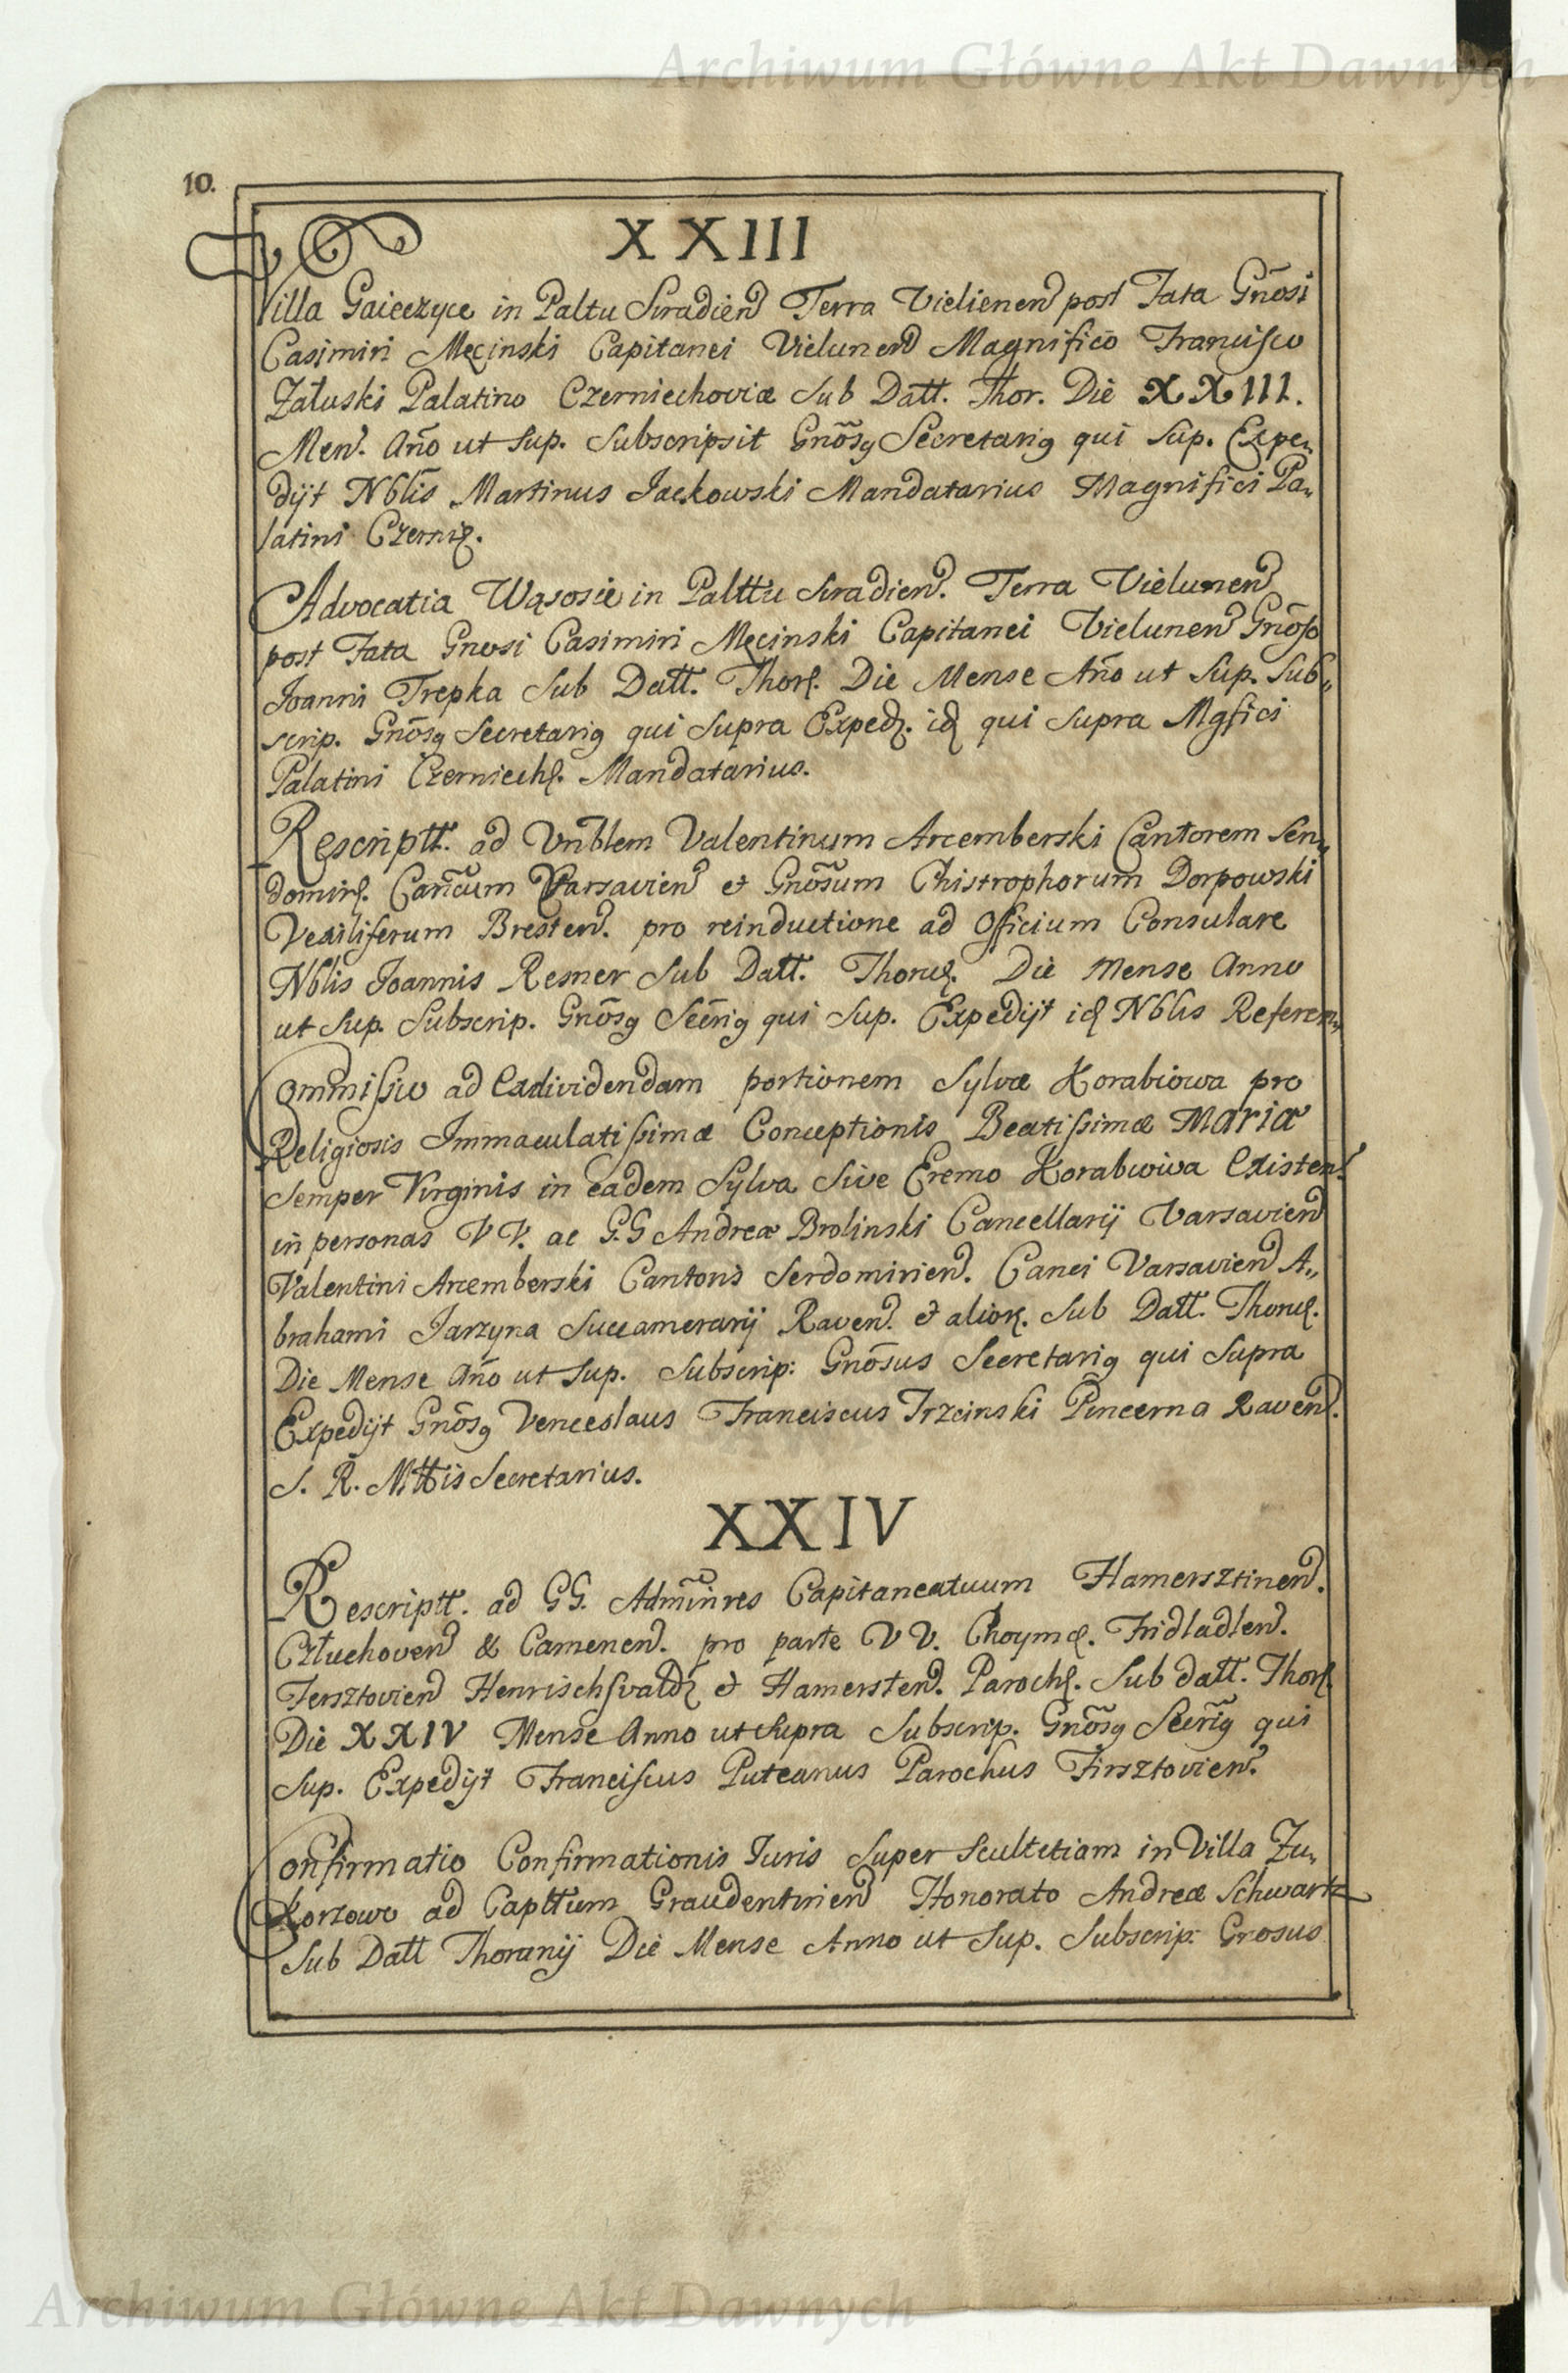 Archiwum Główne Akt Dawnych
10.
XXIII
Villa Gaieczyce in Paltu Siradien̄ Terra Vielienen̄ post Fata Gnōsi
Casimiri Męcinski Capitanei Vielunen̄ Magnifico Francisco
Załuski Palatino Czerniechoviæ Sub Datt. Thor. Die XXIII.
Men. Año ut Sup. Subscripsit Gnōsꝯ Secretariꝯ qui Sup. Expe„
dijt Nblis Martinus Jackowski Mandatarius Magnifici Pa„
latini Czernię.
Advocatia Wąsosie in Palttu Siradien. Terra Vielunen
post Fata Gnosi Casimiri Męcinski Capitanei Vielunen Gnōso
Joanni Trepka Sub Datt. Thorę. Die Mense Año ut Sup. Sub„
scrip. Gnōsꝯ Secretariꝯ qui Supra Exped. idę qui Supra Mgfici
Palatini Czerniechę. Mandatarius.
Rescriptt. ad Vnblem Valentinum Arcemberski Cantorem Sen„
domirę. Cañcum Varsavien et Gnōsum Chistrophorum Dorpowski
Vexiliferum Bresten. pro reinductione ad Officium Consulare
Nblis Joannis Resner Sub Datt. Thorué. Die Mense Anno
ut Sup. Subscrip. Gnōsꝯ Sec̄riꝯ qui Sup. Expedijt idę Nblis Referen„
Commissio ad Exdividendam portionem Sylvæ Korabiowa pro
Religiosis Immaculatissimæ Conceptionis Beatissimæ Mariæ
Semper Virginis in eadem Sylva Sive Eremo Korabiowa Existen.
in personas V V. ac G.G Andreæ Brolinski Cancellarij Varsavien
Valentini Arcemberski Cantoris Serdomirien. Canci Varsavien A„
brahami Jarzyna Succamerarij Raven. et alioꝝ. Sub Datt. Thorué.
Die Mense Año ut Sup. Subscrip: Gnōsus Secretariꝯ qui Supra
Expedijt Gnōsꝯ Venceslaus Franciscus Trzcinski Pincerna Raven.
S. R. Mttis Secretarius.
XXIV
Rescriptt. ad GG. Adm̃inres Capitaneatuum Hamersztinen.
Człuchoven & Camenen. pro parte V V. Choymę. Fridladlen.
Fersztovien Henrischsvaldę et Hamersten. Parochę. Sub datt. Thorę
Die XXIV Mense Anno ut Supra Subscrip. Gnōsꝯ Sec̄riꝯ qui
Sup. Expedijt Franciscus Puteanus Parochus Firsztovien.
Confirmatio Confirmationis Juris Super Scultetiam in Villa Zu„
Korzowo ad Capttum Graudentinien Honorato Andreæ Schwartz
Sub Datt Thorunij Die Mense Anno ut Sup. Subscrip: Grosus
Archiwum Główne Akt Dawnych